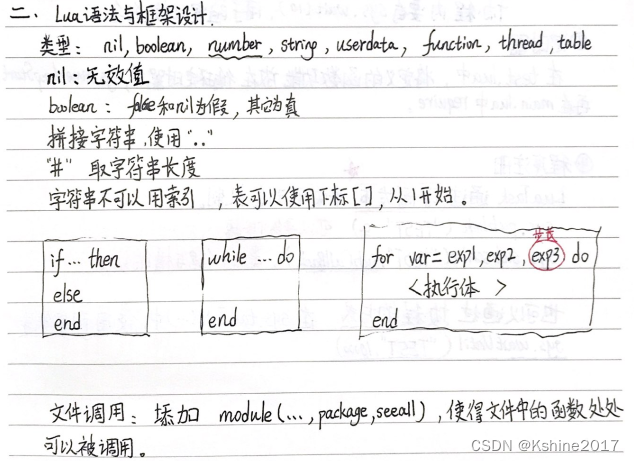 二、Lua语法与框架设计.
类型: nil, boolean, number, string, userdata, function, thread, table
nil: 无效值
boolean: false和nil为假, 其它为真
拼接字符串, 使用".."
"#" 取字符串长度
字符串不可以用索引, 表可以使用下标[ ], 从1开始。
if … then
else
end
while … do
end
步长
for var = exp1, exp2, exp3 do
<执行体 >
end
文件调用: 添加 module(…, package,seeall), 使得文件中的函数处处
可以被调用。
CSDN @Kshine2017